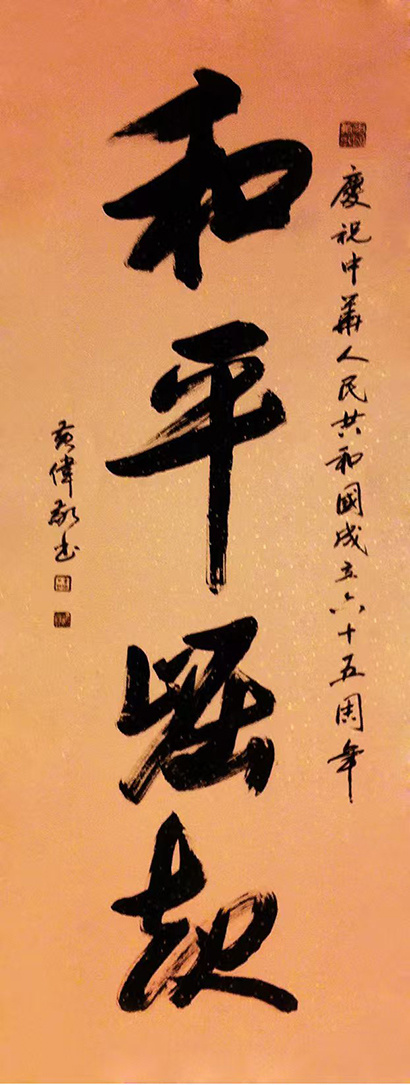 慶祝中華人民共和國成立六十五周年
和平崛起
黄偉书